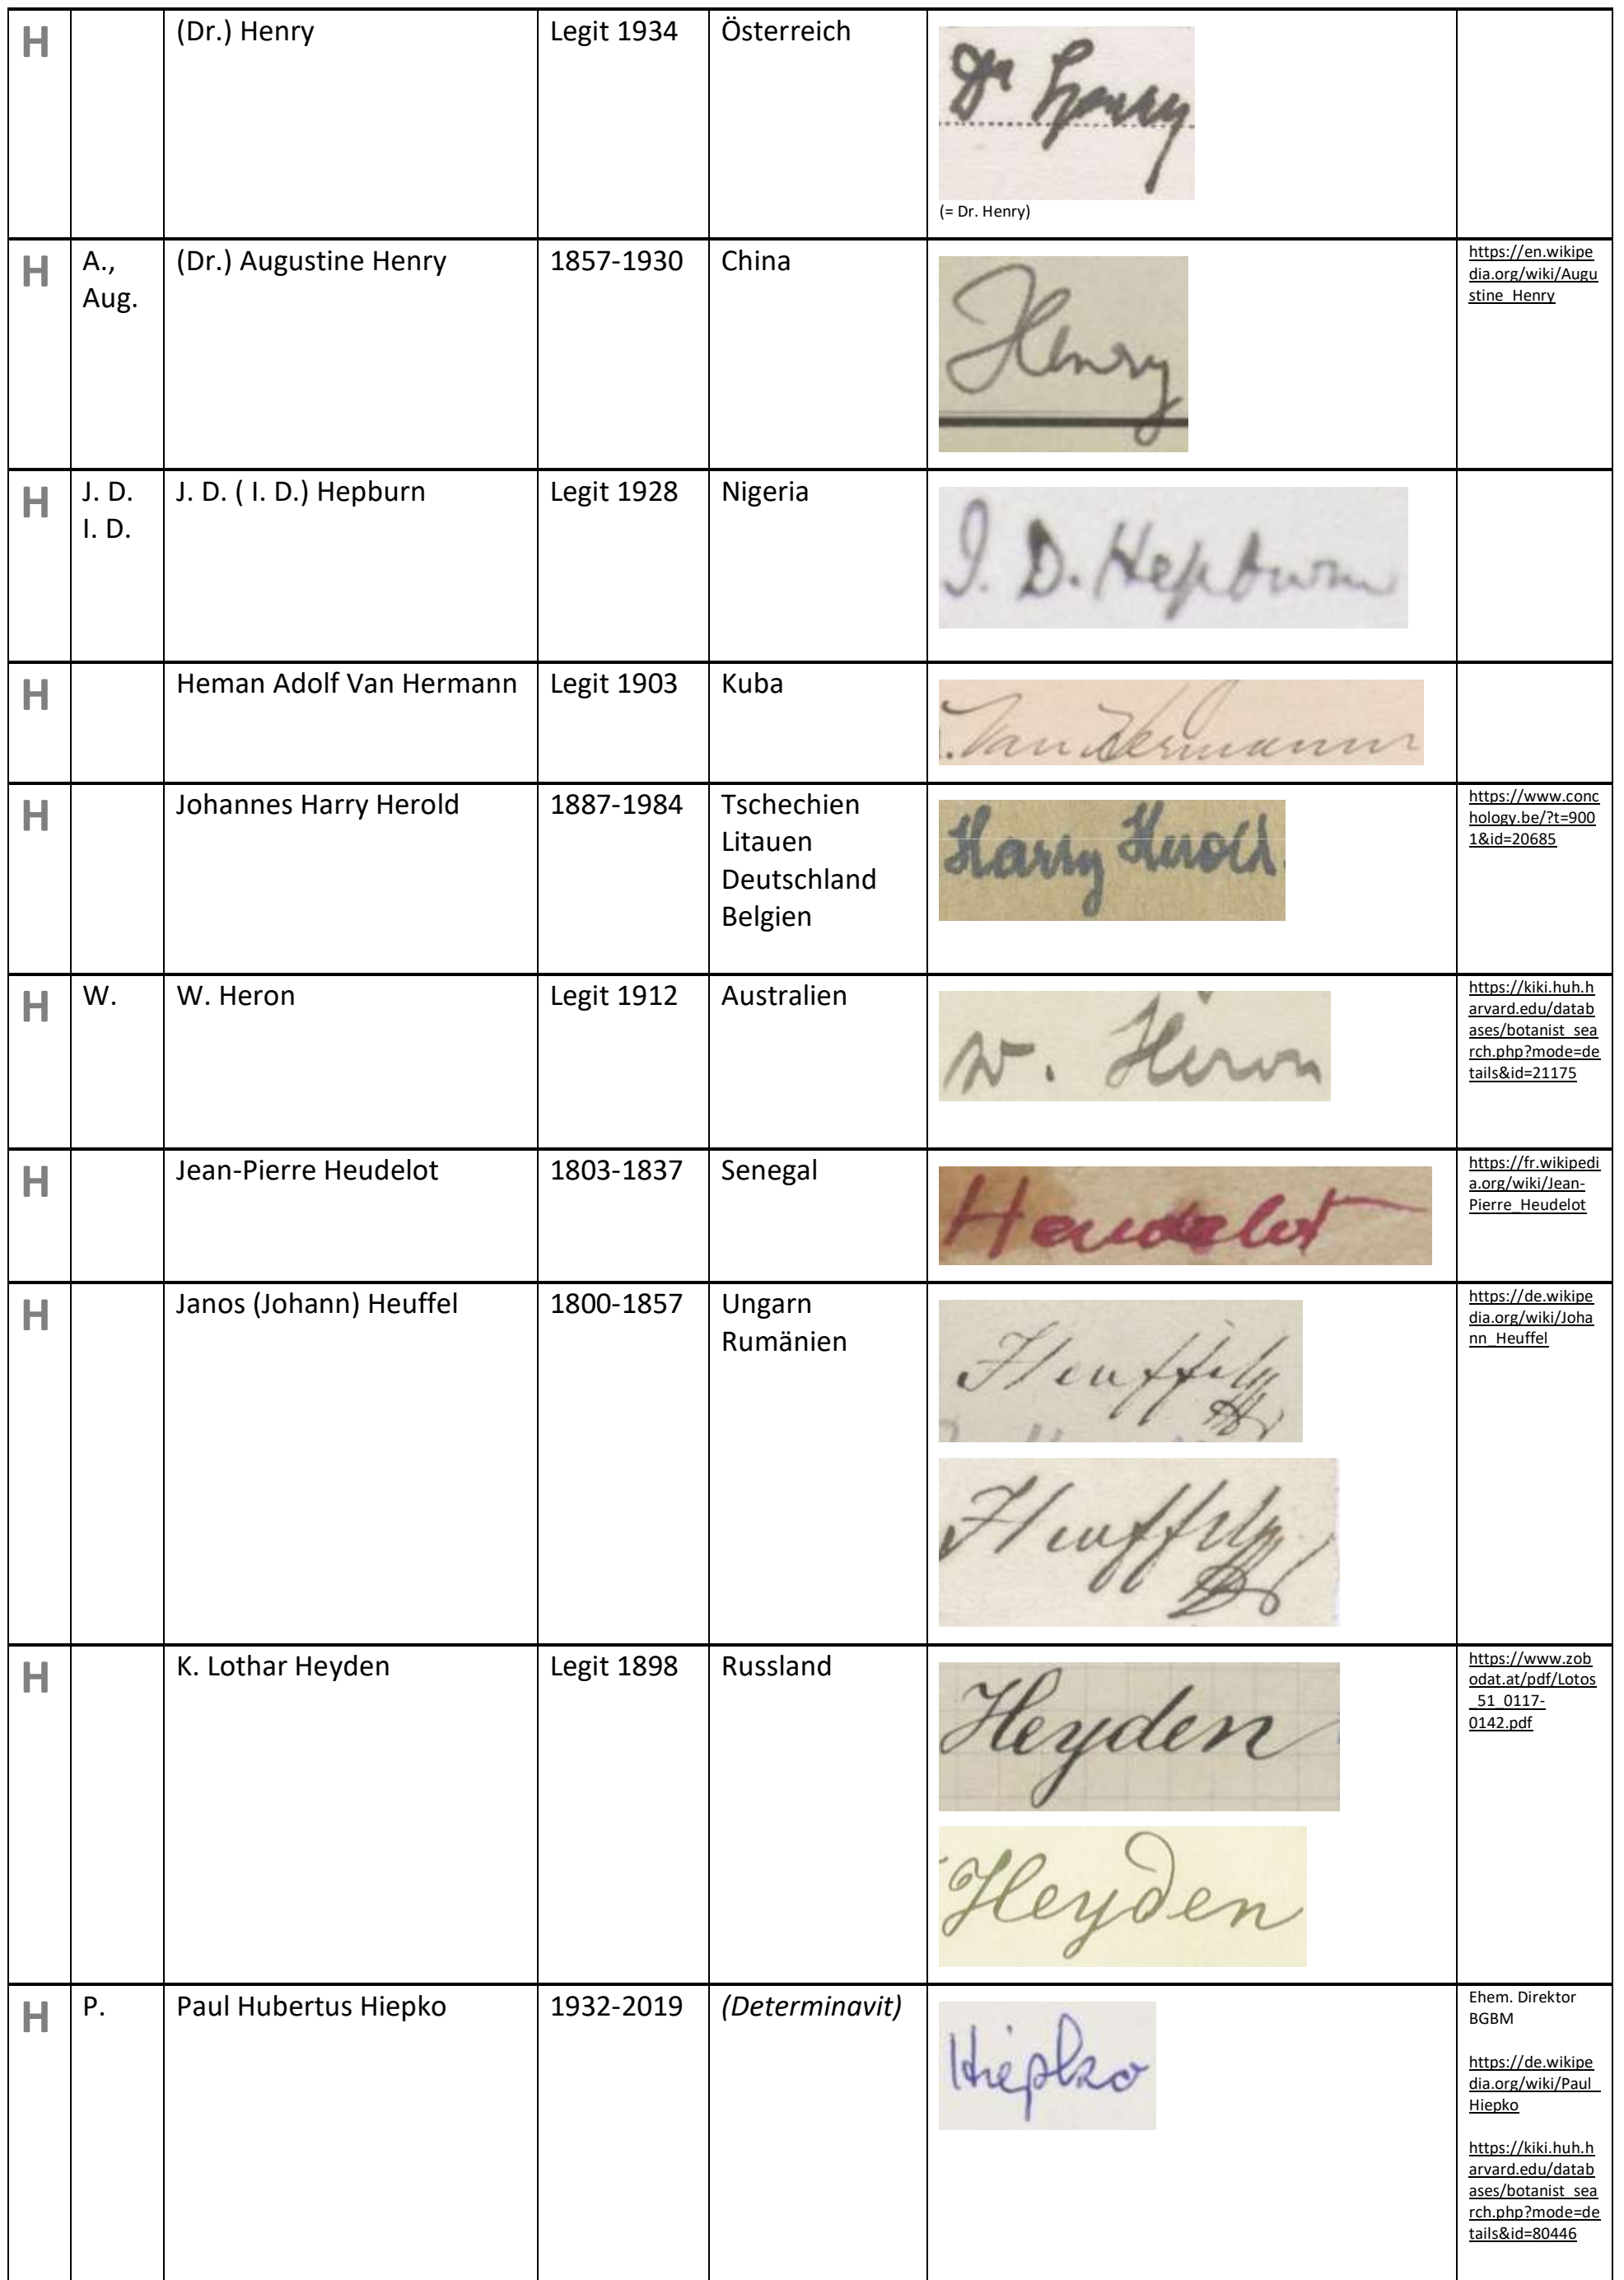 H
(Dr.) Henry
Legit 1934
Österreich
Dr Henry
(= Dr. Henry)
H
A.,
Aug.
(Dr.) Augustine Henry
1857-1930
China
Henry
https://en.wikipe
dia.org/wiki/Augu
stine_Henry
H
J. D.
I. D.
J. D. ( I. D.) Hepburn
Legit 1928
Nigeria
J. D. Hepburn
H
Heman Adolf Van Hermann
Legit 1903
Kuba
. Van Hermann
H
Johannes Harry Herold
1887-1984
Tschechien
Litauen
Deutschland
Belgien
Harry Herold
https://www.conc
hology.be/?t=900
1&id=20685
H
W.
W. Heron
Legit 1912
Australien
W. Heron
https://kiki.huh.h
arvard.edu/datab
ases/botanist_sea
rch.php?mode=de
tails&id=21175
H
Jean-Pierre Heudelot
1803-1837
Senegal
Heudelot
https://fr.wikipedi
a.org/wiki/Jean-
Pierre_Heudelot
H
Janos (Johann) Heuffel
1800-1857
Ungarn
Rumänien
Heuffel
Heuffel
https://de.wikipe
dia.org/wiki/Joha
nn_Heuffel
H
K. Lothar Heyden
Legit 1898
Russland
Heyden
Heyden
https://www.zob
odat.at/pdf/Lotos
_51_0117-
0142.pdf
H
P.
Paul Hubertus Hiepko
1932-2019
(Determinavit)
Hiepko
Ehem. Direktor
BGBM
https://de.wikipe
dia.org/wiki/Paul_
Hiepko
https://kiki.huh.h
arvard.edu/datab
ases/botanist_sea
rch.php?mode=de
tails&id=80446